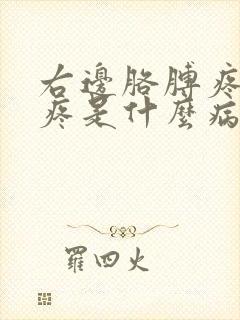 右邊胳膊疼
疼是什麼病
羅四火